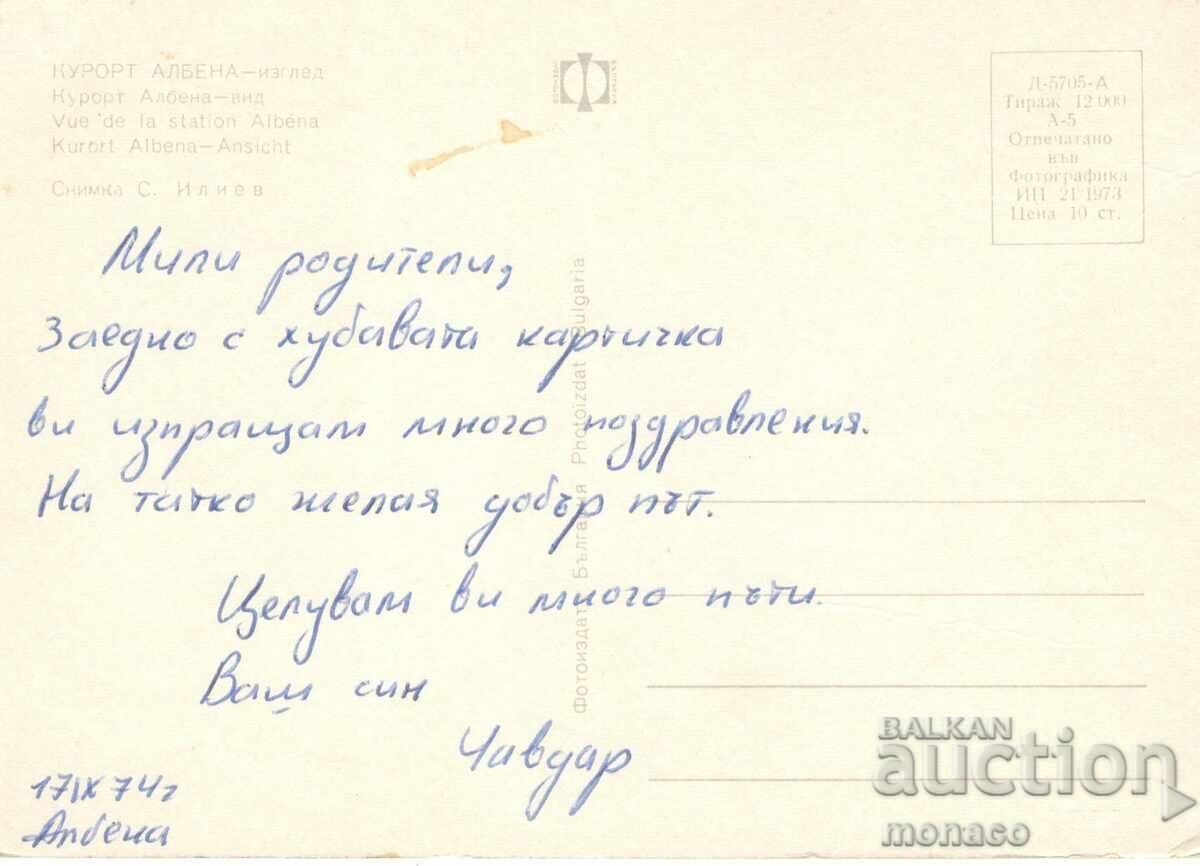 КУРОРТ АЛБЕНА—изглед
Курорт Албена—вид
Vue de la station Albéna
Kurort Albena—Ansicht
Снимка С. Илиев
Д-5705-А
Тираж 12 000
А-5
Отпечатано
във
Фотографика
ИП 21/1973
Цена 10 ст.
Мили родители,
Заедно с хубавата картичка
ви изпращам много поздравления.
На татко желая добър път.
Целувам ви много пъти.
Ваш син
Чавдар
17 IX 74 г
Албена
Фотоиздат България Photoizdat Bulgaria
BALKAN
auction
monaco